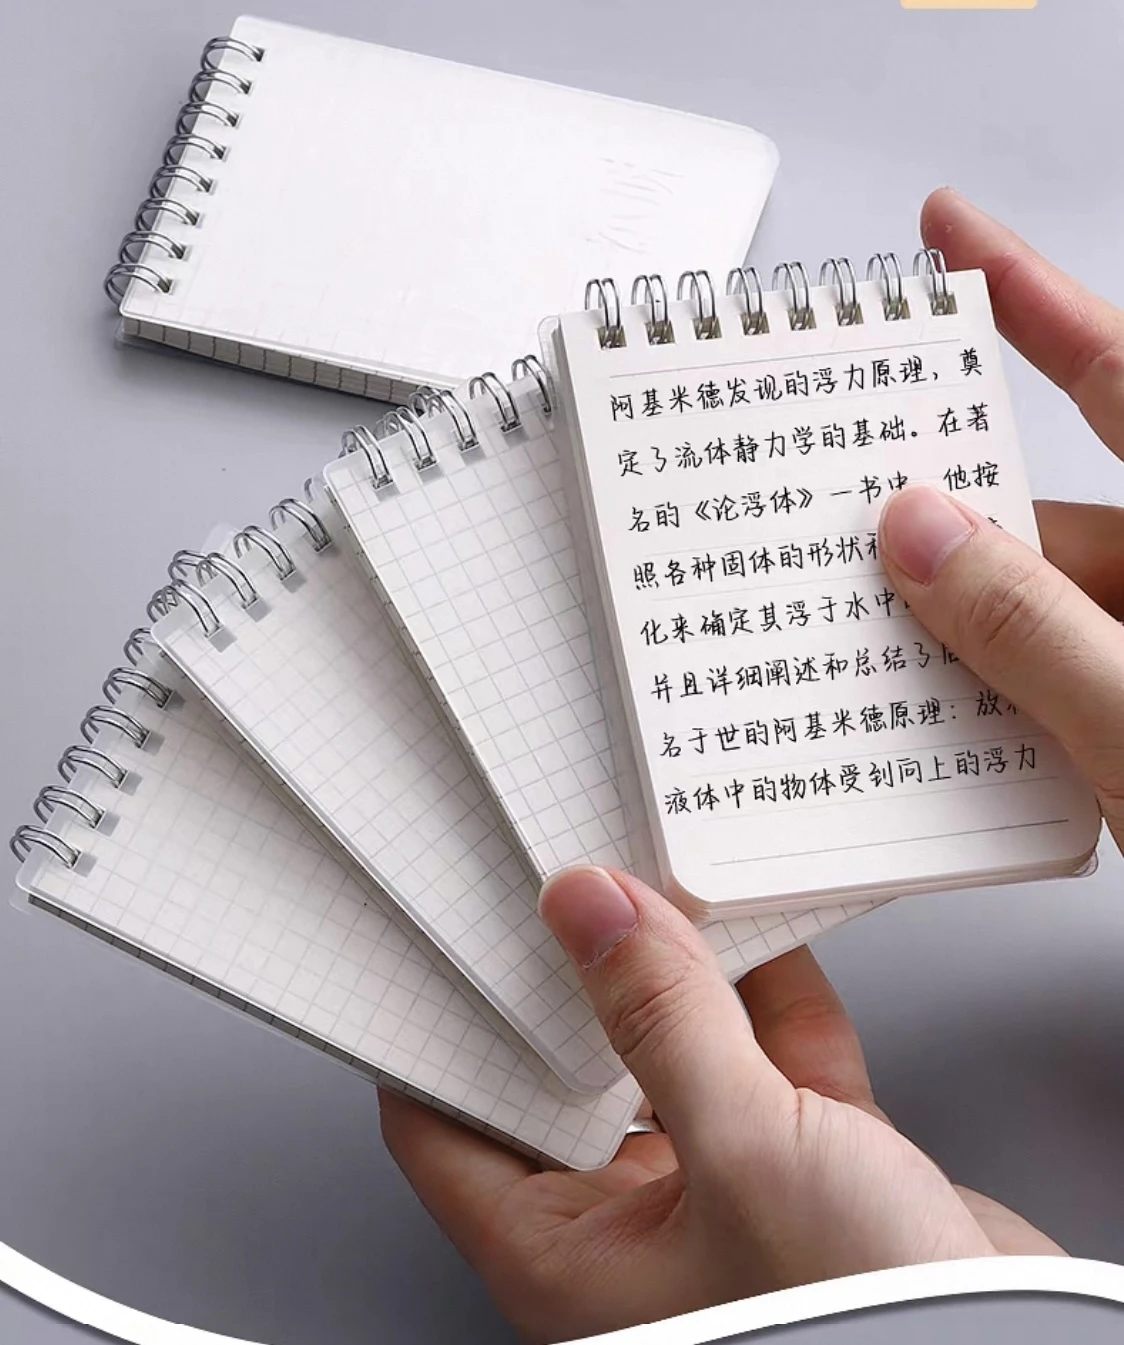 阿基米德发现的浮力原理，奠
定了流体静力学的基础。在著
名的《论浮体》一书中 他按
照各种固体的形状
化来确定其浮于水中
并且详细阐述和总结了
名于世的阿基米德原理：放
液体中的物体受到向上的浮力